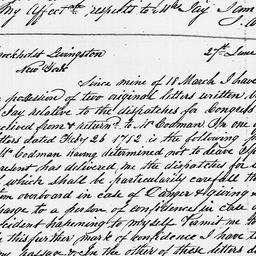 My Affectte respects to Mrs Jay I am
Brockholst Livingston 27th June
New York
Since mine of 18 March I have
possession of two original letters written
Jay relative to the dispatches for Congress
received from & return'd to Mr Codman. In one
letters dated Feby 26 1782 is the following
Mr Codman having determined not to leave
has delivered me the dispatches for
which shall be particularly careful
overboard in case of Danger & giving
charge to a person of confidence in case
accident happening to myself Permit me
this further mark of confidence I have
my passage &c In the other of these letters